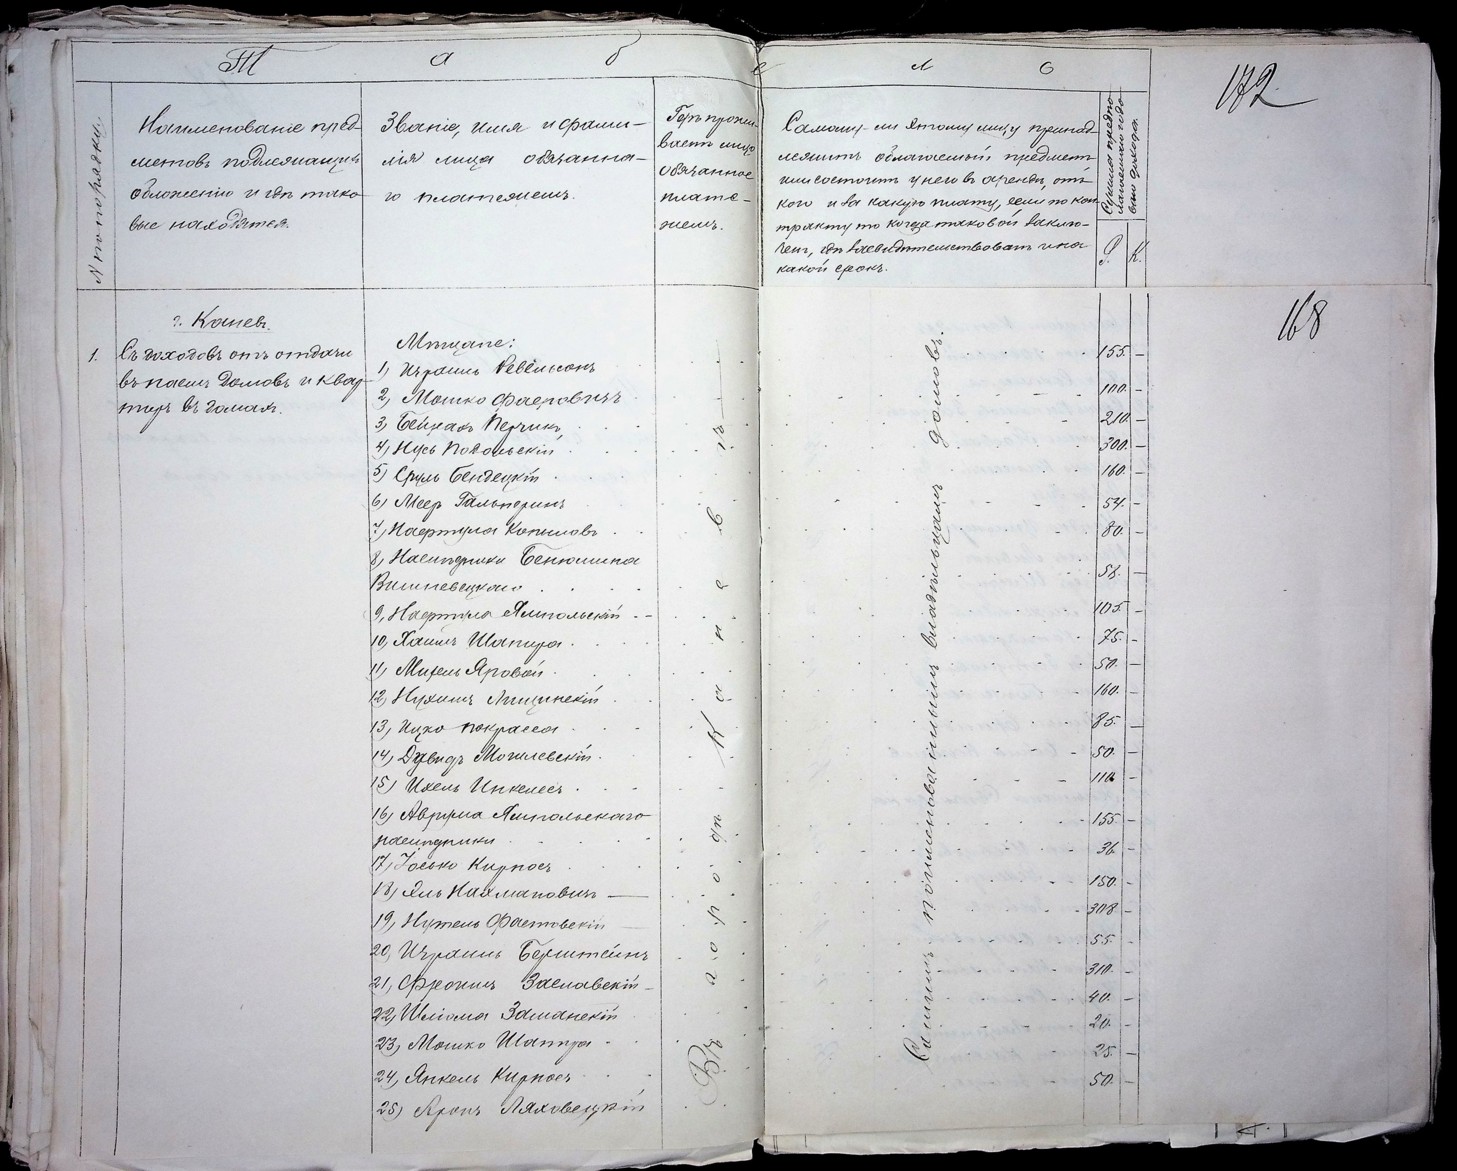 Табело
172
№ по порядку.
Наименованіе пред-
метовъ подлежащихъ
обложенію и гдѣ тако-
вые находятся.
Званіе, имя и фами-
лія лица обязанна-
го платежемъ.
Гдѣ прожи-
ваетъ лицо
обязанное
плате-
жемъ.
Самому-ли этому лицу принад-
лежитъ облагаемый предметъ
или состоитъ у него въ арендѣ, отъ
кого и за какую плату, если по кон-
тракту то когда таковой заклю-
ченъ, гдѣ засвидѣтельствованъ и на
какой срокъ.
Сумма предпо-
лагаемаго годо-
ваго дохода.
Р. К.
168
г. Каневъ.
1. Съ доходовъ отъ отдачи
въ наемъ домовъ и квар-
тиръ въ домахъ.
Мѣщане:
1) Израиль Ревельсонъ 155. –
2) Мошко Фаеровичъ 100. –
3) Бейрахъ Перчикъ 210. –
4) Нусь Подольскій 300. –
5) Сруль Бендецкій 160. –
6) Меер Гальперинъ 54. –
7) Нафтула Копиловъ 80. –
8) Наслѣдники Бенюмина
Вишневецкаго 58. –
9) Нафтула Ямпольскій 105. –
10) Хаимъ Шапира 75. –
11) Михель Яровой 50. –
12) Нухимъ Лищинскій 160. –
13) Ицко Покрасса 85. –
14) Дувидъ Могилевскій 50. –
15) Ихель Инкелесъ 110. –
16) Аврума Ямпольскаго
наслѣдники 155. –
17) Іосько Кирносъ 36. –
18) Эль Нахмановичъ 150. –
19) Нутель Фастовскій 308. –
20) Израиль Берштейнъ 55. –
21) Фроимъ Заславскій 310. –
22) Шліома Заманскій 40. –
23) Мошко Шапира 20. –
24) Янкель Кирносъ 25. –
25) Аронъ Ляховецкій 50. –
Въ городѣ Каневѣ
Самимъ поименованнымъ владѣльцамъ домовъ.